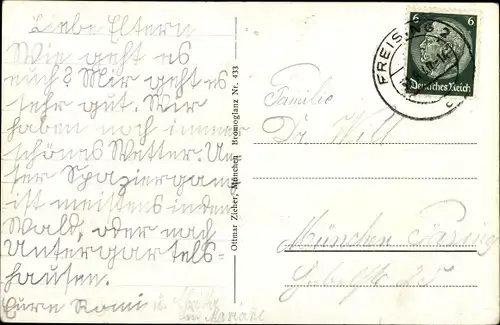 Liebe Eltern
Wie geht es
euch? Mir geht es
sehr gut. Wir
haben noch immer
schönes Wetter. Un-
ser Spaziergang
ist meistens in den
Wald, oder nach
Untergartels
hausen.
Eure Romi u.
Ottmar Zieher, München Bromoglanz Nr. 433
Familie
Dr. Will
München Pasing
FREISING 2
6 6
Deutsches Reich